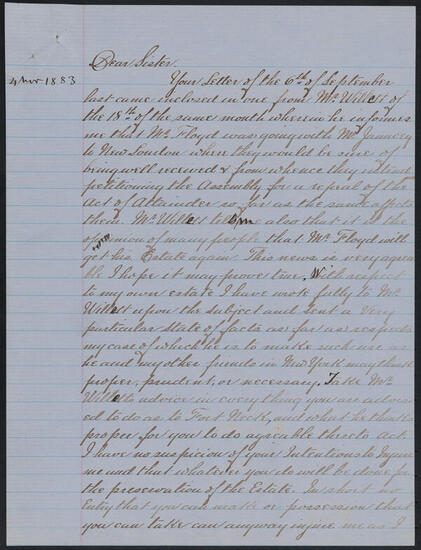 Dear Sister.
4 Nov 1883
Your Letter of the 6th of September
last came inclosed in one from Mr. Willett of
the 18th of the same month wherein he informs
me that Mr. Floyd was going with Mr.
to New London where they would be sure of
being well received & from whence they intend
petitioning the Assembly for a repeal of the
Act of Attainder so far as the same affects
them. Mr Willett tells me also that it is the
opinion of many people that Mr. Floyd will
get his Estate again. This news is very agrea
ble I hope it may prove true. With respect
to my own estate I have wrote fully to Mr.
Willett upon the subject and sent a very
particular State of facts as far as respects
my case of which he is to make such use as
he and my other friends in New York may think
proper, prudent, or necessary. Take Mr.
Willetts advice in every thing you are advi
sed to do as to Fort Neck, and what he thinks
proper for you to do agreable thereto Act.
I have no suspicion of your Intentions to Injure
me and that whatever you do will be done for
the preservation of the Estate. In short no
Entry that you can make or possession that
you can take can anyway injure me as I